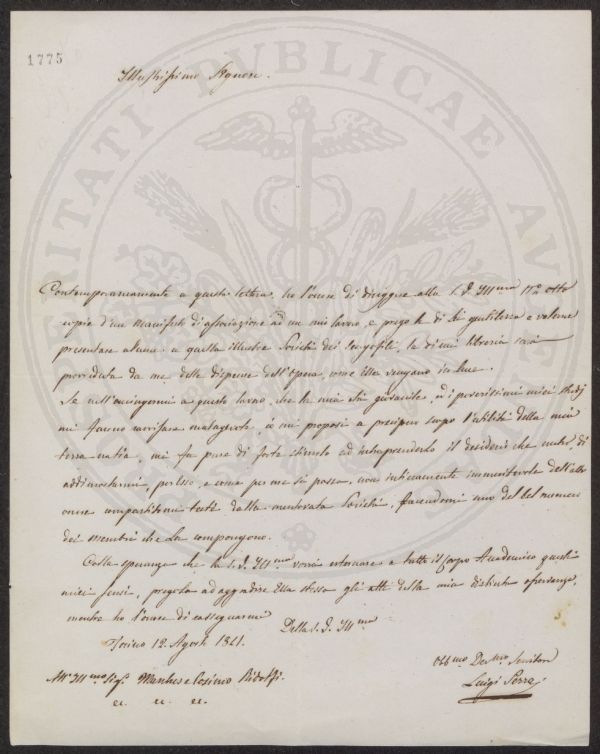 1775
Illustrissimo Signore.
PROSPERITATI PUBLICAE AUGENDAE
Contemporaneamente a questa lettera, ho l'onore di diriggere alla S. V. Ill.ma N.o otto
copie d'un Manifesto di associazione ad un mio lavoro, e prego la di lei gentilezza a volerne
presentare alcune a questa illustre Società dei Georgofili, la di cui libreria sarà
provveduta da me delle dispense dell'Opera, come esse vengano in luce.
Se nell'accingermi a questo lavoro, che la mia età giovanile, ed i poverissimi miei studj
mi fanno ravvisare malagevole io mi proposi a precipuo scopo l'utilità della mia
terra natia, mi fu pure di forte stimolo ad intraprenderlo il desiderio che nutro, di
addimostrarmi, per esso, e come per me si possa, non intieramente immeritevole dell'alto
onore compartitomi testè dalla mentovata Società, facendomi uno del bel numero
dei membri che La compongono.
Colla speranza che la S. V. Ill.ma vorrà esternare a tutto il Corpo Accademico questi
miei sensi, pregola ad aggradire Ella stessa gli atti della mia distinta osservanza,
mentre ho l'onore di rassegnarmi
Della S. V. Ill.ma
Torino 12. Agosto 1841.
Obb.mo Dev.mo Servitore
All' Ill.mo Sig.r Marchese Cosimo Ridolfi.
Luigi Serra
ec. ec. ec.